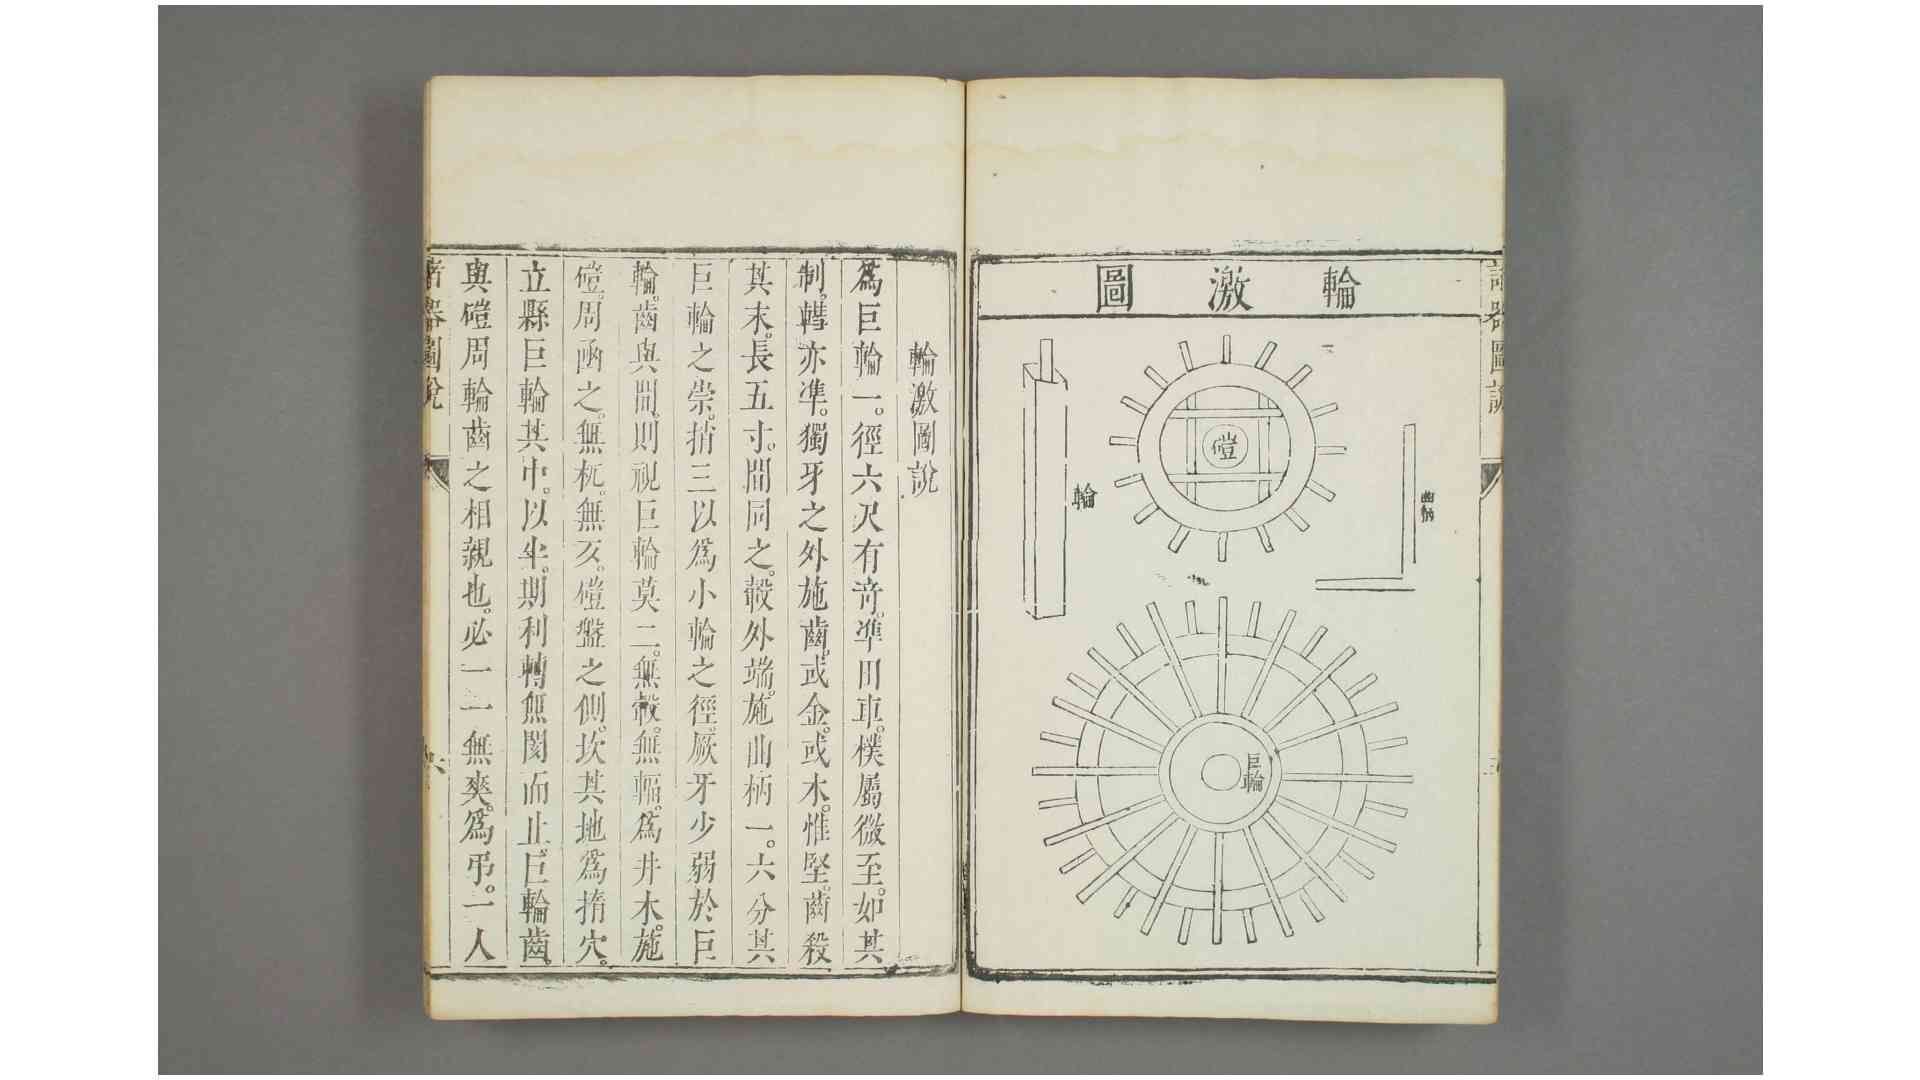 諸器圖說
輪激圖
磑
輪
曲柄
巨輪
輪激圖說
爲巨輪一。徑六尺有奇。凖田車。樸屬微至。如其
制。轊亦凖。獨牙之外施齒。或金。或木。惟堅。齒殺
其末。長五寸。間同之。轂外端。施曲柄一。六分其
巨輪之崇。捎三以爲小輪之徑。厥牙少弱於巨
輪。齒與間。則視巨輪莫二。無轂。無輻。爲井木。施
磑。周函之。無杌。無亥。磑盤之側。坎其地爲楕穴。
立縣巨輪其中。以半。期利轉無閡而止。巨輪齒。
與磑周輪齒之相親也。必一一無爽。爲弔。一人
諸器圖說
六